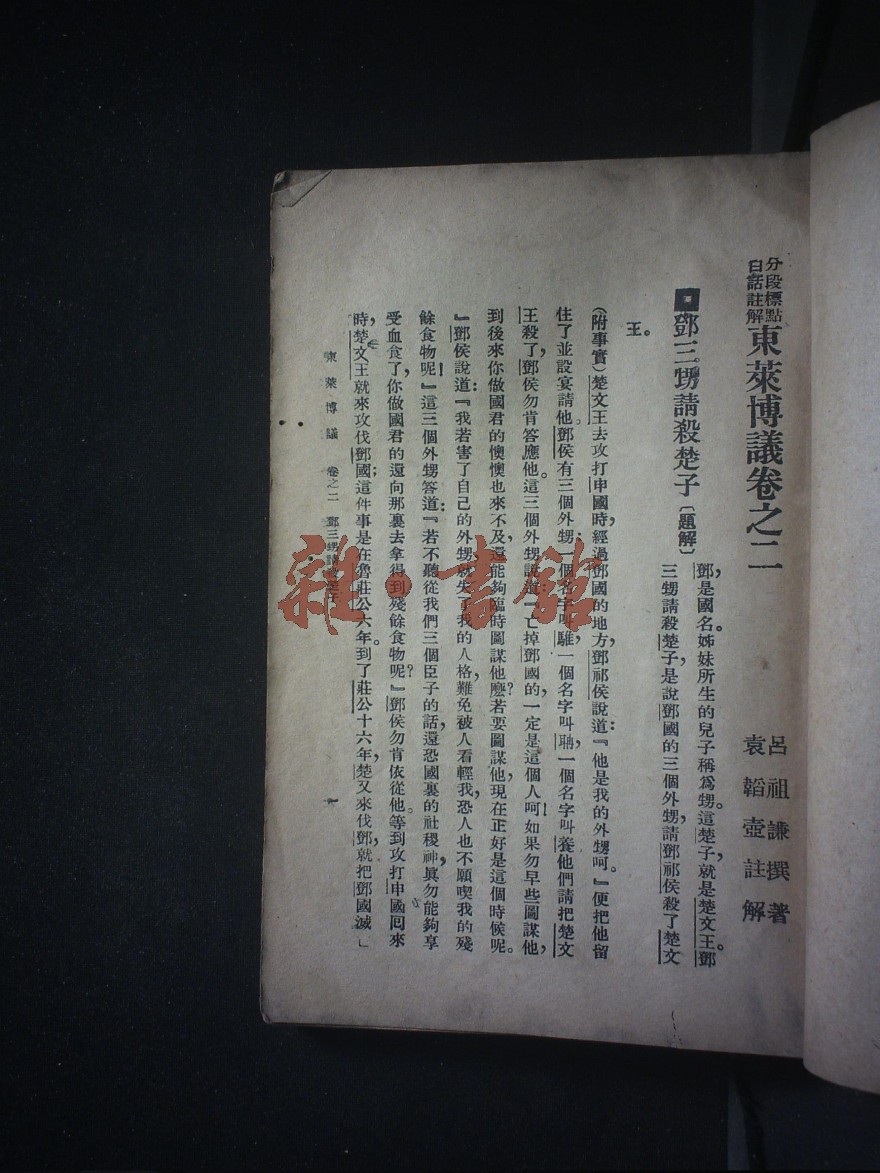 分段標點
白話註解
東萊博議卷之二
呂祖謙撰著
袁韜壺註解
鄧三甥請殺楚子〔題解〕
鄧,是國名。姊妹所生的兒子稱爲甥。這楚子,就是楚文王。鄧
三甥請殺楚子,是說鄧國的三個外甥,請鄧祁侯殺了楚文
王。
(附事實)楚文王去攻打申國時,經過鄧國的地方,鄧祁侯說道:『他是我的外甥呵。』便把他留
住了並設宴請他。鄧侯有三個外甥,一個名字叫騅,一個名字叫聃,一個名字叫養,他們請把楚文
王殺了,鄧侯勿肯答應他。這三個外甥說道:『亡掉鄧國的,一定是這個人呵!如果勿早些圖謀他,
到後來你做國君的懊懊也來不及,還能夠臨時圖謀他麽?若要圖謀他,現在正好是這個時候呢。
』鄧侯說道:『我若害了自己的外甥,就失了我的人格,難免被人看輕我,恐人也不願喫我的殘
餘食物呢!』這三個外甥答道:『若不聽從我們三個臣子的話,還恐國裏的社稷神,眞勿能夠享
受血食了,你做國君的還向那裏去拿得到殘餘食物呢?』鄧侯勿肯依從他。等到攻打申國囘來
時,楚文王就來攻伐鄧國;這件事是在魯莊公六年。到了莊公十六年,楚又來伐鄧,就把鄧國滅」
東萊博議 卷之二 鄧三甥請殺楚子 一
雜·書館